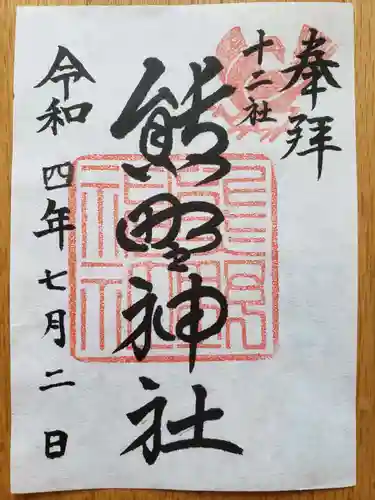 奉拝
十二社
熊野神社
令和四年七月二日